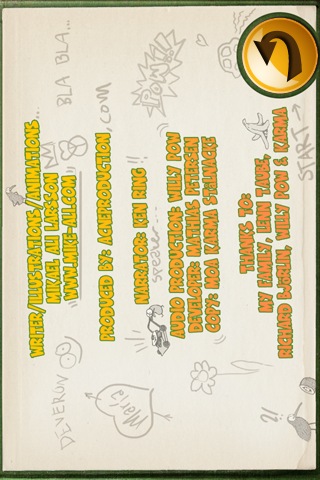 BLA BLA...
POW!
WRITER/ILLUSTRATIONS/ANIMATIONS...
MIKAEL ALI LARSSON
WWW.MIKE-ALI.COM
PRODUCED BY: ACNEPRODUCTION.com
NARRATOR: KEN RING!!
speaker...
AUDIO PRODUCTION: WILLY POW
DEVELOPER: MATHIAS PETERSEN
COPY: MOA KARMA
THANKS TO:
MY FAMILY, LENNI TAUBE,
RICHARD BJERLIN, WILLY POW & KARMA
START
DEVERUN
Maria
?!